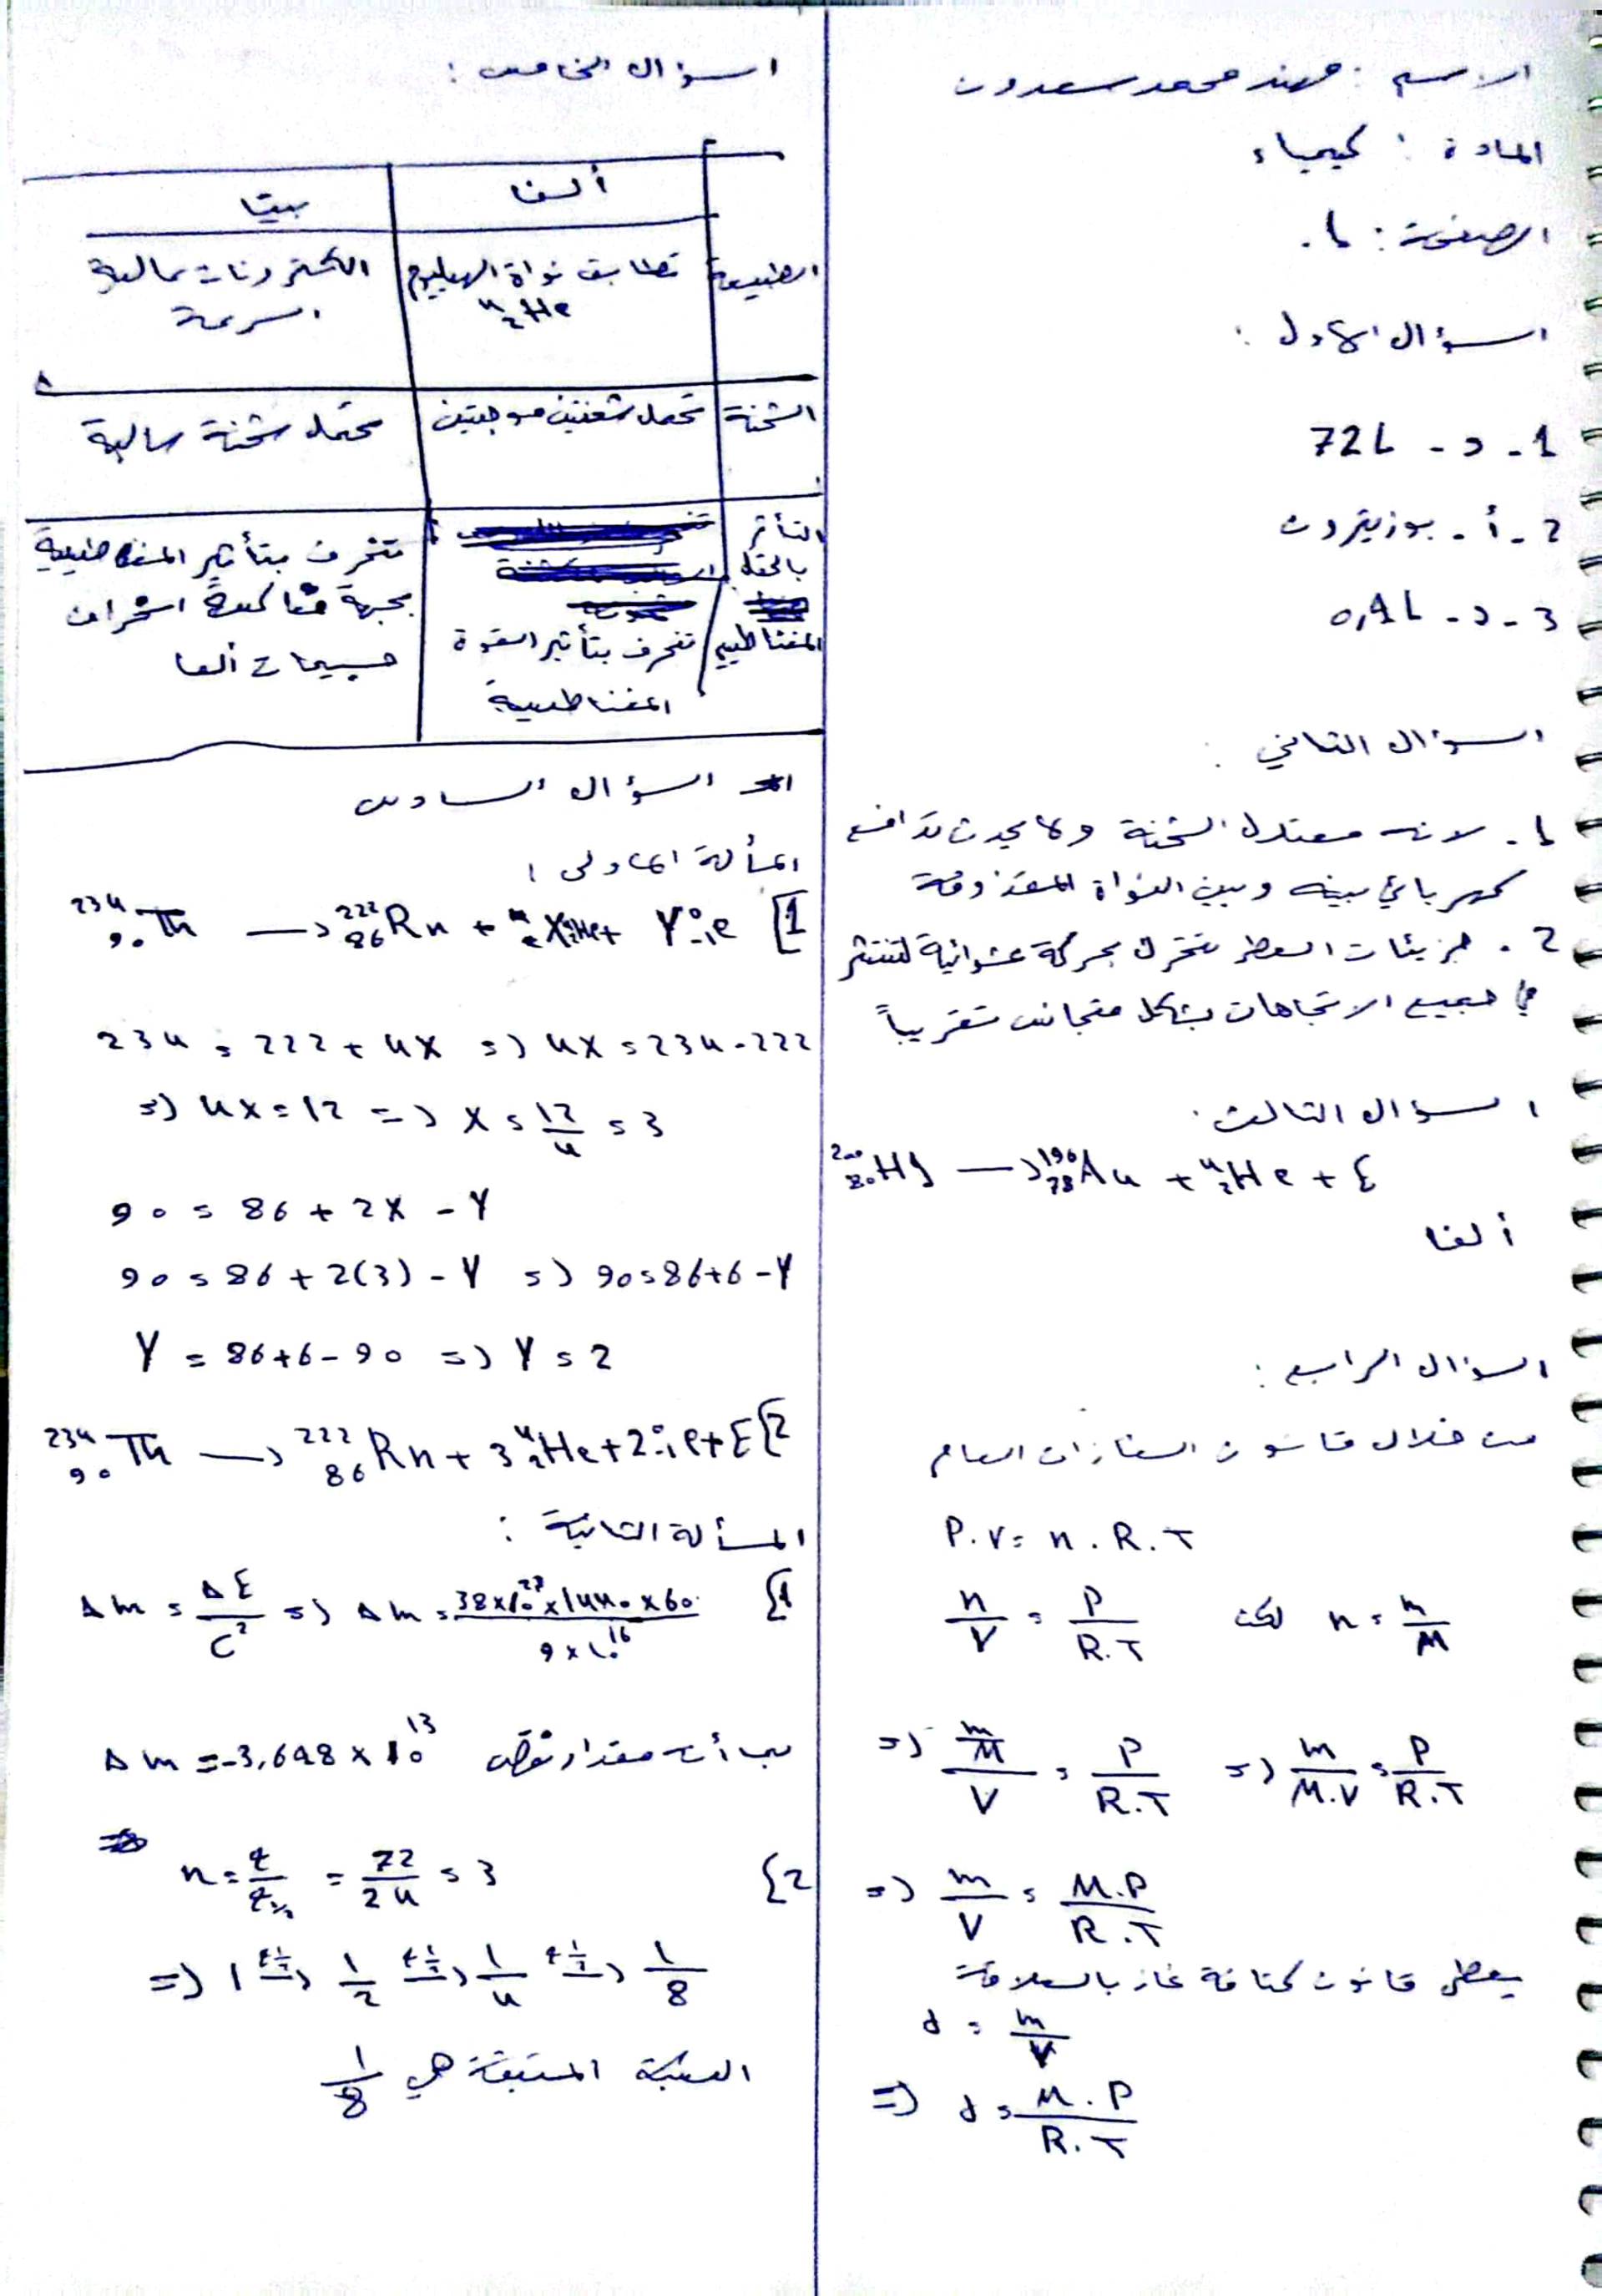 الاسم : مهند محمد سعدون
المادة : كيمياء
الصفحة : 1.
السؤال الأول :
1 - د - 72L
2 - أ - بوزيترون
3 - د - 0,1L
السؤال الثاني :
1. لانه معتدل الشحنة ولا يحدث تدافع
كهربائي بينه وبين النواة المقذوفة
2. جزيئات العطر تتحرك بحركة عشوائية لتنتشر
في جميع الاتجاهات بشكل متجانس تقريباً
السؤال الثالث :
²⁰⁰₈₀Hg → ¹⁹⁶₇₈Au + ⁴₂He + E
ألفا
السؤال الرابع :
من خلال قانون الغازات العام
P.V = n.R.T
n/V = P/R.T لكن n = m/M
=> (m/M)/V = P/R.T => m/M.V = P/R.T
=> m/V = M.P/R.T
يعطى قانون كثافة غاز بالعلاقة
d = m/V
=> d = M.P/R.T
السؤال الخامس :
ألفا بيتا
الطبيعة تطابق نواة الهيليوم ⁴₂He الكترونات عالية السرعة
الشحنة تحمل شحنتين موجبتين تحمل شحنة سالبة
التأثر بالحقل المغناطيسي تنحرف بتأثير القوة المغناطيسية تنحرف بتأثير المغناطيسية بجهة معاكسة انحراف جسيمات ألفا
السؤال السادس
المسألة الاولى :
1] ²³⁴₉₀Th → ²²²₈₆Rn + X⁴₂He + Y⁰₋₁e
234 = 222 + 4X => 4X = 234 - 222
=> 4X = 12 => X = 12/4 = 3
90 = 86 + 2X - Y
90 = 86 + 2(3) - Y => 90 = 86 + 6 - Y
Y = 86 + 6 - 90 => Y = 2
2] ²³⁴₉₀Th → ²²²₈₆Rn + 3⁴₂He + 2⁰₋₁e + E
المسألة الثانية :
1] Δm = ΔE/C² => Δm = 38×10²⁷×1440×60/9×10¹⁶
بما أنه مقدار نقص Δm = -3,648 × 10¹³
2] n = t/t½ = 72/24 = 3
=> 1 →(t½) 1/2 →(t½) 1/4 →(t½) 1/8
النسبة المتبقية هي 1/8